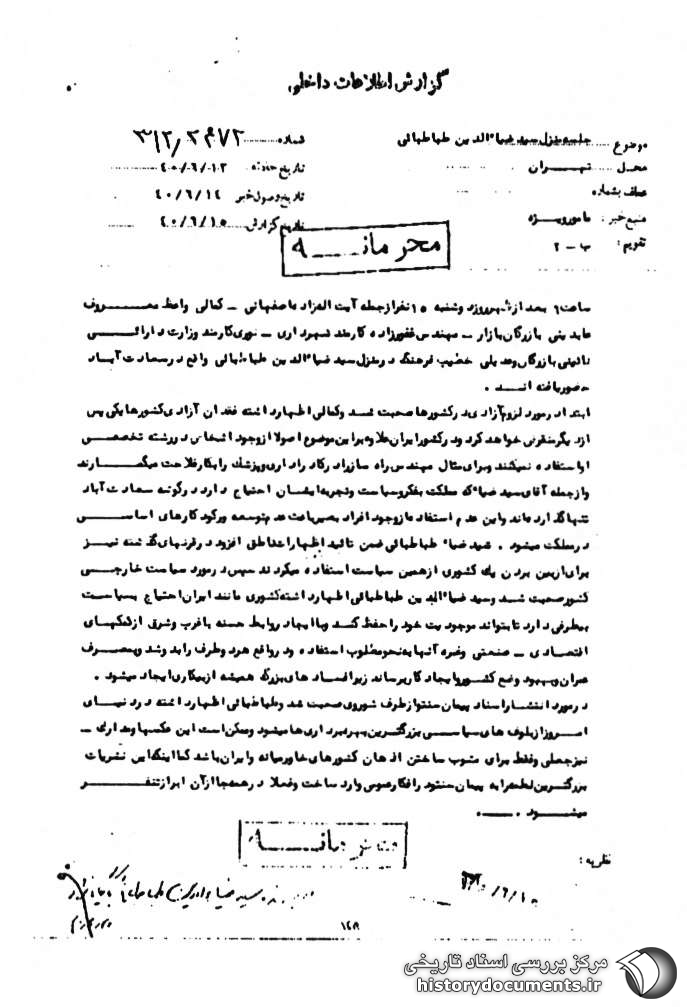 گزارش اطلاعات داخلی
موضوع جلسه منزل سید ضیاءالدین طباطبائی
شماره ۳۱۲/۲۶۷۲
محل تهران
تاریخ حادثه ۴۰/۶/۱۳
عطف بشماره
تاریخ وصول خبر ۴۰/۶/۱۴
منبع خبر: مامور ویژه
تاریخ گزارش ۴۰/۶/۱۵
تقویم: ب - ۲
محرمانه
ساعت ۹ بعد از ظهر روز دوشنبه ۱۵ نفر از جمله آیت اله زاده اصفهانی - کمالی واعظ معروف
عابدینی بازرگان بازار - مهندس غفورزاده کارمند شهرداری - نوری کارمند وزارت دارائی
نائینی بازرگان وعدیلی خطیب فرهنگ در منزل سید ضیاءالدین طباطبائی واقع در سعادت آباد
حضور یافته اند .
ابتدا در مورد لزوم آزادی در کشورها صحبت شد وکمالی اظهار داشته فقدان آزادی کشورها یکی پس
از دیگر منقرض خواهد کرد ودر کشور ایران علاوه بر این موضوع اصولا از وجود اشخاص در رشته تخصصی
او استفاده نمیکنند وبرای مثال مهندس راه ساز را در کادر اداری وپزشک را بکار فلاحت میگمارند
واز جمله آقای سید ضیاء که مملکت بفکر وسیاست وتجربه ایشان احتیاج دارد در گوشه سعادت آباد
تنها گذارده اند واین عدم استفاده از وجود افراد بصیر باعث عدم توسعه ورکود کارهای اساسی
در مملکت میشود . سید ضیاء طباطبائی ضمن تائید اظهارات ناطق افزود در قرنهای گذشته نیز
برای ازبین بردن یک کشوری از همین سیاست استفاده میکردند سپس در مورد سیاست خارجی
کشور صحبت شد وسید ضیاءالدین طباطبائی اظهار داشته کشوری مانند ایران احتیاج بسیاست
بیطرفی دارد تا بتواند موجودیت خود را حفظ کند وبا ایجاد روابط حسنه با غرب وشرق از کمکهای
اقتصادی - صنعتی وغیره آنها به نحو مطلوب استفاده ودر واقع هر دو طرف را بدوشد وبمصرف
عمران وبهبود وضع کشور وایجاد کار برساند زیرا فسادهای بزرگ همیشه از بیکاری ایجاد میشود .
در مورد انتشار اسناد پیمان سنتو از طرف شوروی صحبت شد وطباطبائی اظهار داشته در دنیای
امروز از بلوف های سیاسی بزرگترین بهره برداری ها میشود وممکن است این عکسها ومدارک -
نیز جعلی وفقط برای مشوب ساختن اذهان کشورهای خاورمیانه وایران باشد کما اینکه این نشریات
بزرگترین لطمه را به پیمان سنتو در افکار عمومی وارد ساخت وفعلا در همه جا از آن ابراز تنفر
میشود .
محرمانه
نظریه :
پرونده سید ضیاءالدین طباطبائی بایگانی شود
۱۲۸
مرکز بررسی اسناد تاریخی
historydocuments.ir